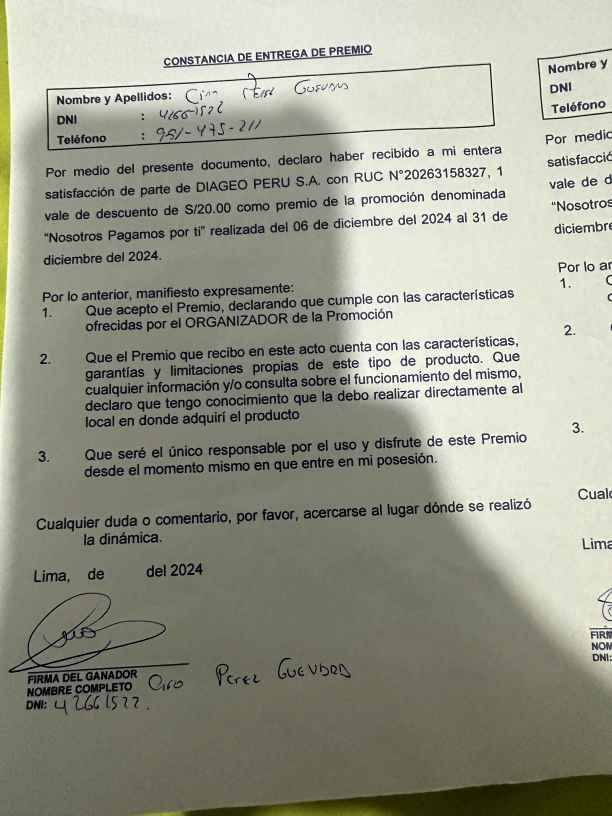 CONSTANCIA DE ENTREGA DE PREMIO
Nombre y Apellidos: Ciro Perez Guevara
DNI : 42661522
Teléfono : 951-475-211
Por medio del presente documento, declaro haber recibido a mi entera
satisfacción de parte de DIAGEO PERU S.A. con RUC N°20263158327, 1
vale de descuento de S/20.00 como premio de la promoción denominada
“Nosotros Pagamos por ti” realizada del 06 de diciembre del 2024 al 31 de
diciembre del 2024.
Por lo anterior, manifiesto expresamente:
1. Que acepto el Premio, declarando que cumple con las características
ofrecidas por el ORGANIZADOR de la Promoción
2. Que el Premio que recibo en este acto cuenta con las características,
garantías y limitaciones propias de este tipo de producto. Que
cualquier información y/o consulta sobre el funcionamiento del mismo,
declaro que tengo conocimiento que la debo realizar directamente al
local en donde adquirí el producto
3. Que seré el único responsable por el uso y disfrute de este Premio
desde el momento mismo en que entre en mi posesión.
Cualquier duda o comentario, por favor, acercarse al lugar dónde se realizó
la dinámica.
Lima, de del 2024
FIRMA DEL GANADOR
NOMBRE COMPLETO Ciro Perez Guevara
DNI: 42661522.
Nombre y
DNI
Teléfono
Por medio
satisfacci
vale de d
“Nosotros
diciembre
Por lo an
1.
2.
3.
Cualq
Lima
FIRM
NOM
DNI: